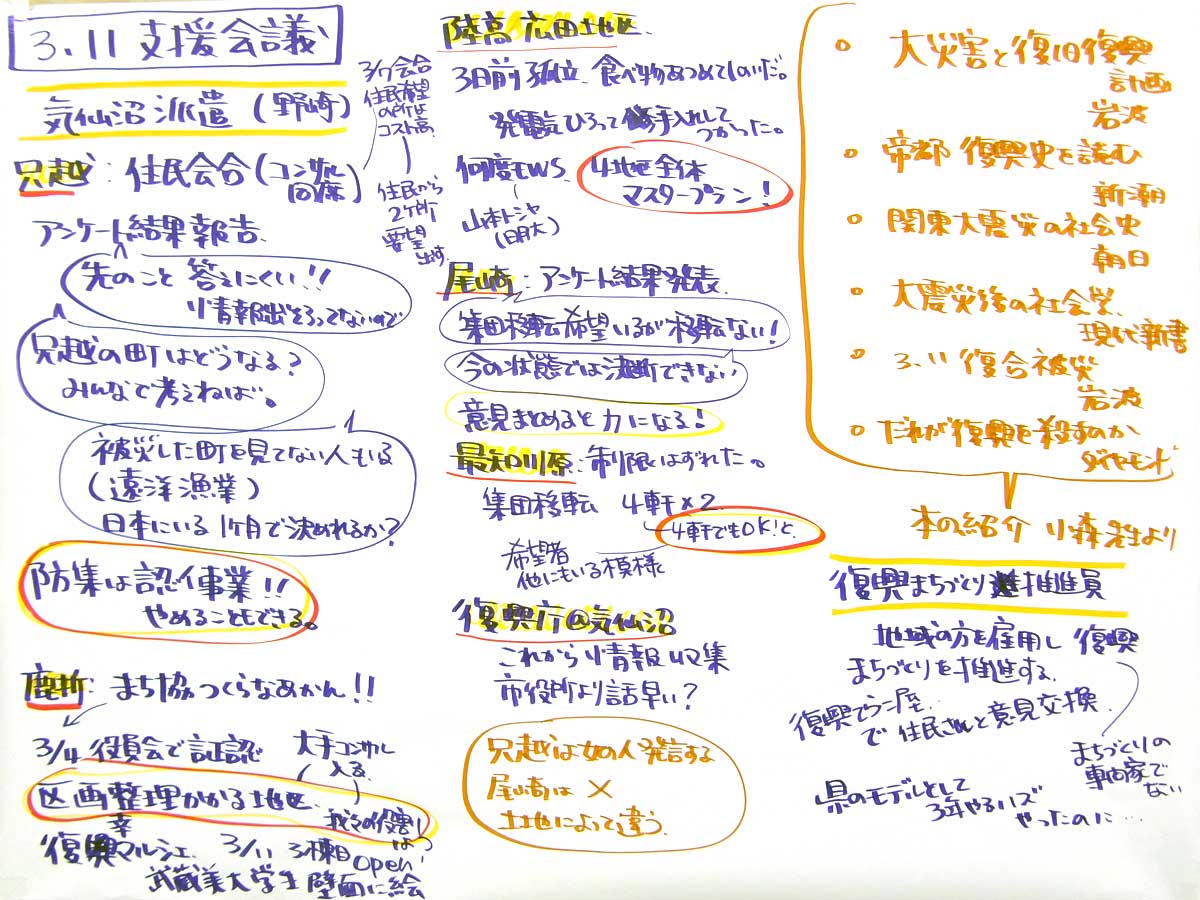 3.11 支援会議
気仙沼派遣(野崎)
只越:住民会合(コンサル
同席)
3/7会合
住民希望
の所は
コスト高
住民から
2ヶ所
要望
出す。
アンケート結果報告
先のこと 答えにくい!!
情報出そろってないので
只越の町はどうなる?
みんなで考えねば。
被災した町を見てない人もいる
(遠洋漁業)
日本にいる1ヶ月で決めれるか?
防集は認可事業!!
やめることもできる。
鹿折:まち協つくらなあかん!!
3/4 役員会で証認
大手コンサル
入る
区画整理かかる地区
我々の役割
は?
幸
復興マルシェ 3/11 3棟目
open!
武蔵美大学生 壁面に絵
陸高 広田地区
3日前孤立、食べ物あつめてしのいだ。
発電気ひろって手入れして
つかった。
何度もWS
山本トシヤ
(明大)
4地区全体
マスタープラン!
尾崎:アンケート結果発表
集団移転希望いるが移転ない!
今の状態では決断できない
意見まとめると力になる!
最知川原:制限はずれた。
集団移転 4軒×2
4軒でもOK!と
希望者
他にもいる模様
復興庁@気仙沼
これから情報収集
市役所より話早い?
只越は女の人発言する
尾崎は ×
土地によって違う
○ 大災害と復旧復興
計画
岩波
○ 帝都 復興史を読む
新潮
○ 関東大震災の社会史
朝日
○ 大震災後の社会学
現代新書
○ 3.11 復合被災
岩波
○ だれが復興を殺すのか
ダイヤモンド
本の紹介 小森先生より
復興まちづくり推進員
地域の方を雇用し 復興
まちづくりを推進する。
復興てらこ屋..
で 住民さんと意見交換
まちづくりの
専門家で
ない
県のモデルとして
3年やるハズ
やったのに…